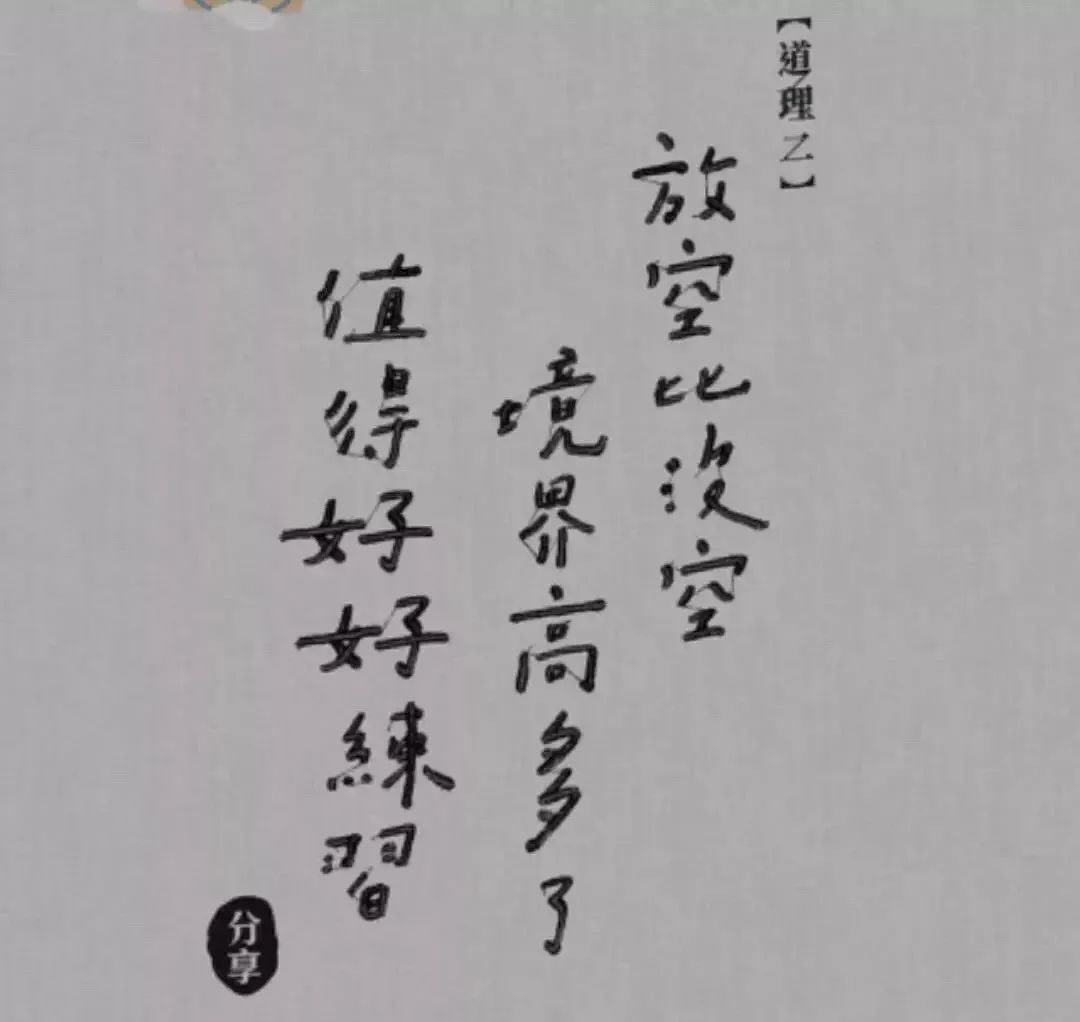 【道理乙】
放空比沒空
境界高多了
值得好好練習
分享